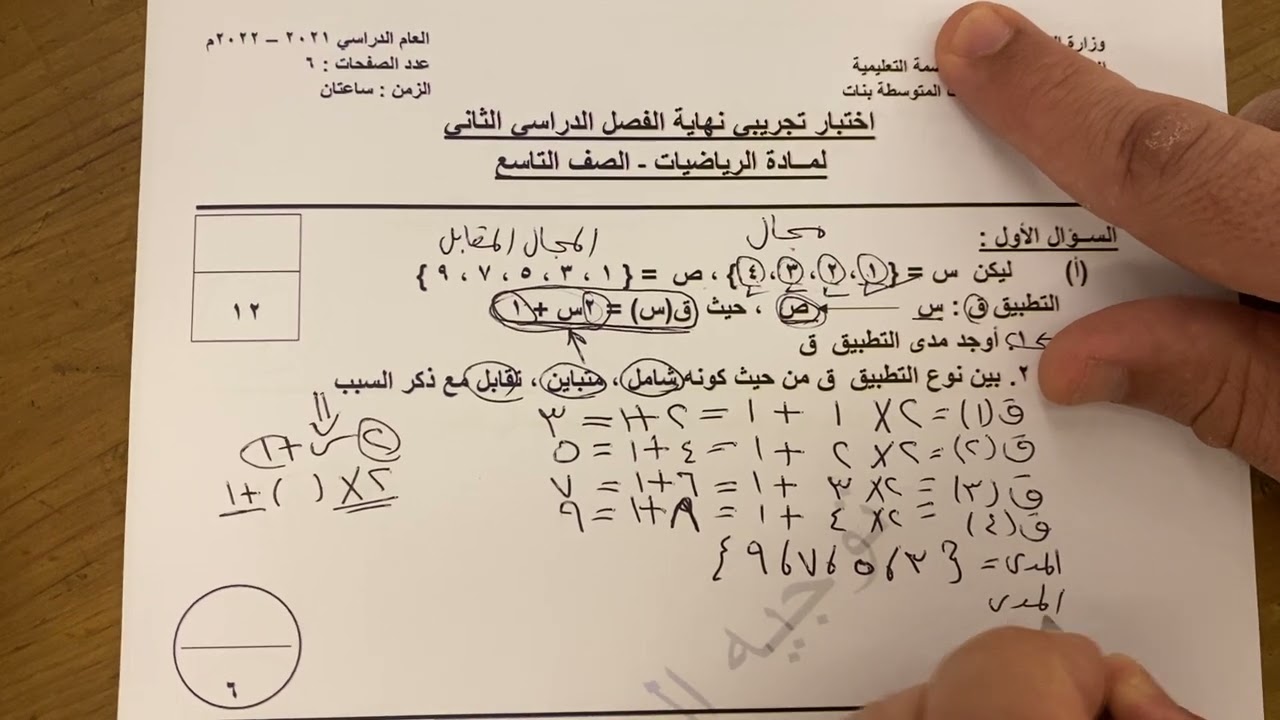 العام الدراسي ٢٠٢١ – ٢٠٢٢م
عدد الصفحات : ٦
الزمن : ساعتان
وزارة
التعليمية
المتوسطة بنات
اختبار تجريبي نهاية الفصل الدراسي الثاني
لمادة الرياضيات - الصف التاسع
السؤال الأول :
مجال
المجال المقابل
(أ) ليكن س = {١ ، ٢ ، ٣ ، ٤} ، ص = {١ ، ٣ ، ٥ ، ٧ ، ٩}
التطبيق ق : س ← ص ، حيث ق(س) = ٢س + ١
١. أوجد مدى التطبيق ق
٢. بين نوع التطبيق ق من حيث كونه شامل ، متباين ، تقابل مع ذكر السبب
١٢
ق(١) = ٢ × ١ + ١ = ٢ + ١ = ٣
ق(٢) = ٢ × ٢ + ١ = ٤ + ١ = ٥
ق(٣) = ٢ × ٣ + ١ = ٦ + ١ = ٧
ق(٤) = ٢ × ٤ + ١ = ٨ + ١ = ٩
المدى = {٣ ، ٥ ، ٧ ، ٩}
المدى
٢س + ١
٢ × ( ) + ١
توجيه
٦